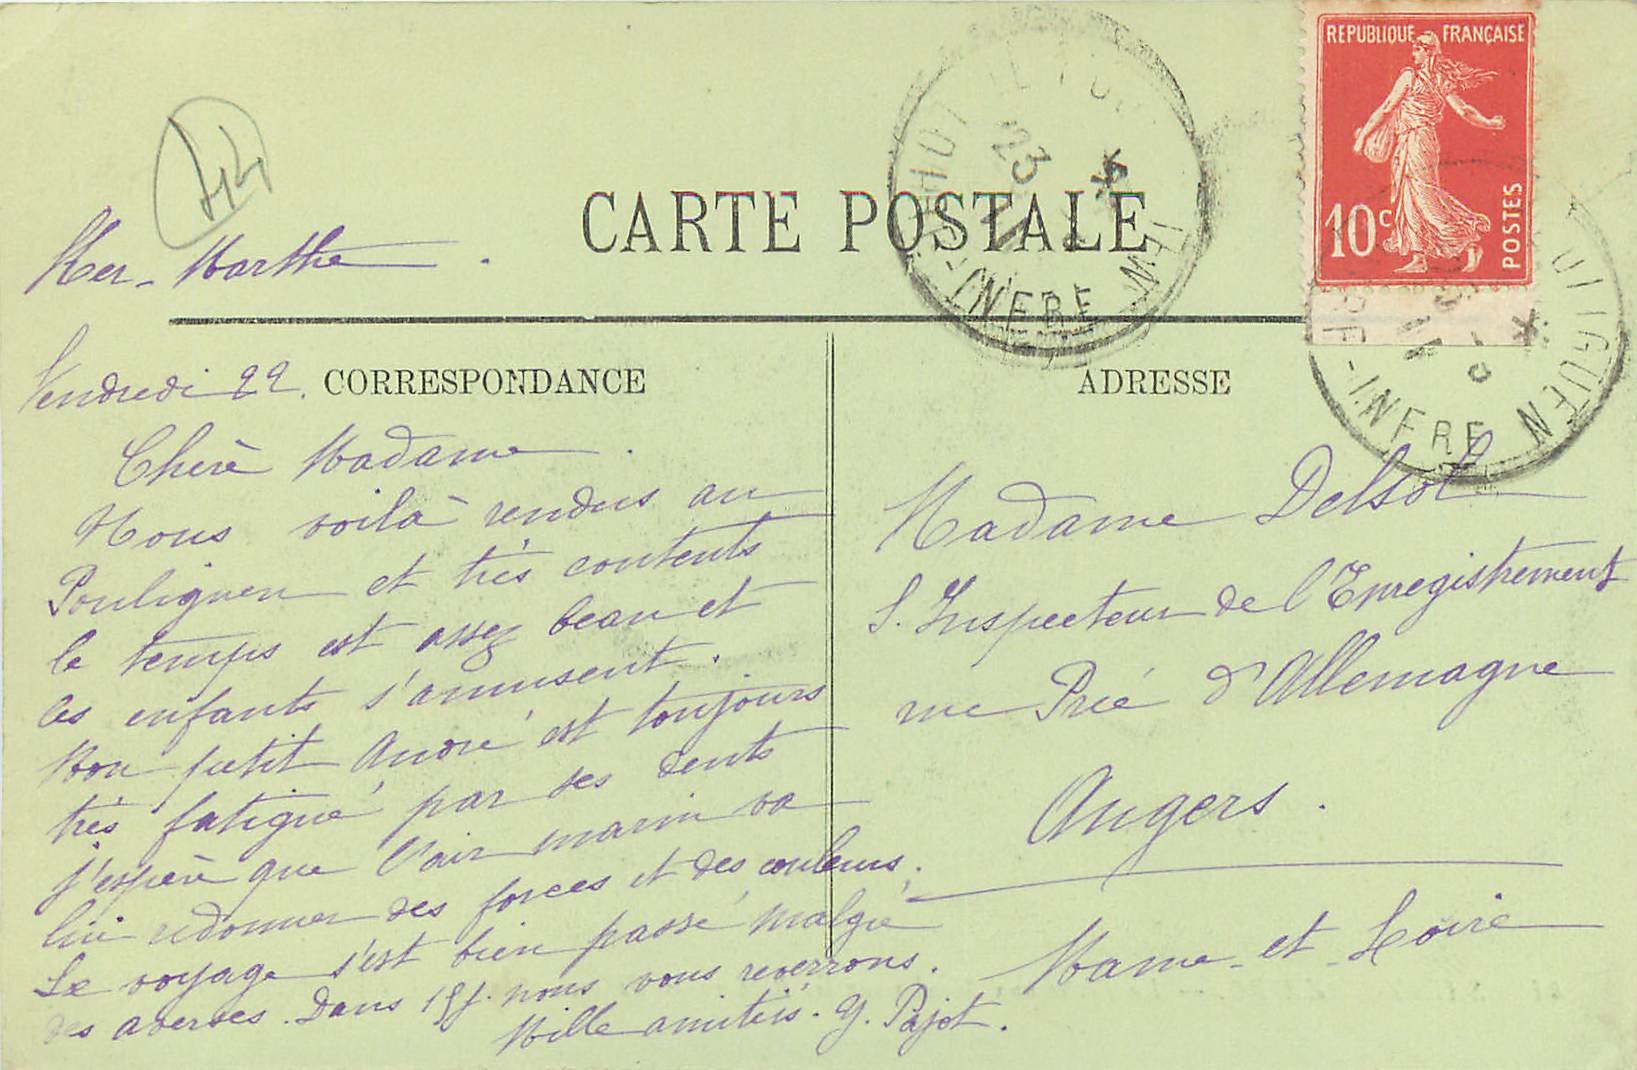 44
Ker-Marthe.
CARTE POSTALE
REPUBLIQUE FRANÇAISE
10c
POSTES
23
INFRE
INFRE
Vendredi 22.
CORRESPONDANCE
Chère Madame.
Nous voilà rendus au
Pouliguen et très contents
le temps est assez beau et
les enfants s'amusent.
Mon petit André est toujours
très fatigué par ses dents
j'espère que l'air marin va
lui redonner des forces et des couleurs.
Le voyage s'est bien passé malgré
des averses. Dans 15 j. nous vous reverrons.
Mille amitiés. Y. Pajot.
ADRESSE
Madame Delsol
S. Inspecteur de l'Enregistrement
rue Prée d'Allemagne
Angers.
Maine-et-Loire